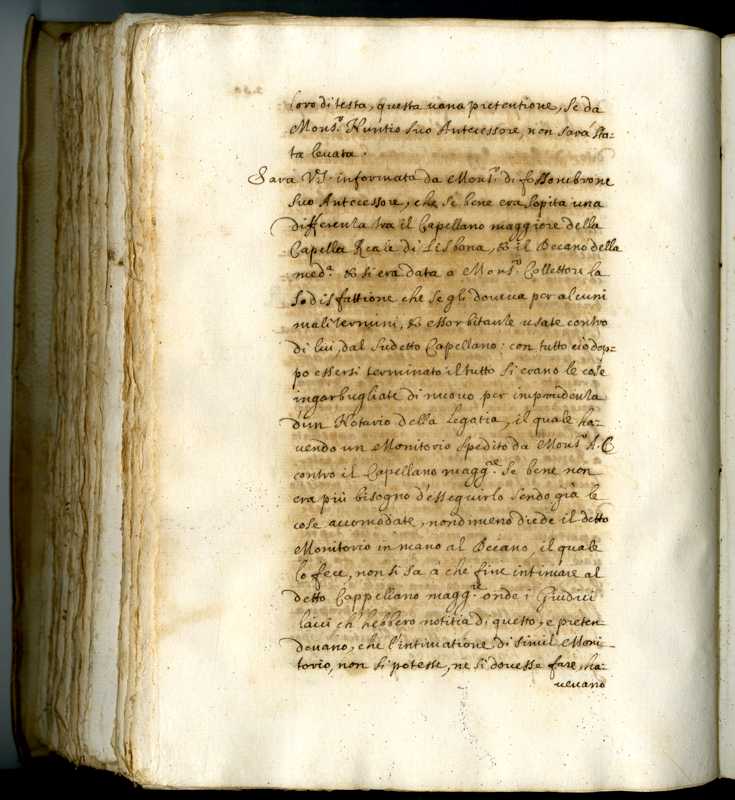 loro di testa, questa vana pretentione, se da
Mons.r Nuntio suo Antecessore, non sarà sta-
ta levata.
Sara V.S. informata da Mons.r di fossombrone
suo Antecessore, che se bene era sopita una
differenza tra il Capellano maggiore della
Capella Reale di Lisbona, & il Decano della
med.a & si era data a Mons.r Collettore la
sodisfattione che se gli doveva per alcuni
mali termini, & essorbitanze usate contro
di lui, dal sudetto Capellano; con tutto ciò dop-
po essersi terminato il tutto si erano le cose
ingarbugliate di nuovo per imprudenza
d'un Notario della Legatia, il quale ha-
vendo un Monitorio spedito da Mons.r A.C.
contro il Capellano magg.re se bene non
era più bisogno d'esseguirlo sendo già le
cose accomodate, nondimeno diede il detto
Monitorio in mano al Decano, il quale
lo fece, non si sa à che fine intimare al
detto Cappellano magg.re onde i Giudici
laici ch'hebbero notitia di questo, e preten-
devano, che l'intimatione di simil Moni-
torio, non si potesse, ne si dovesse fare, ha-
vevano